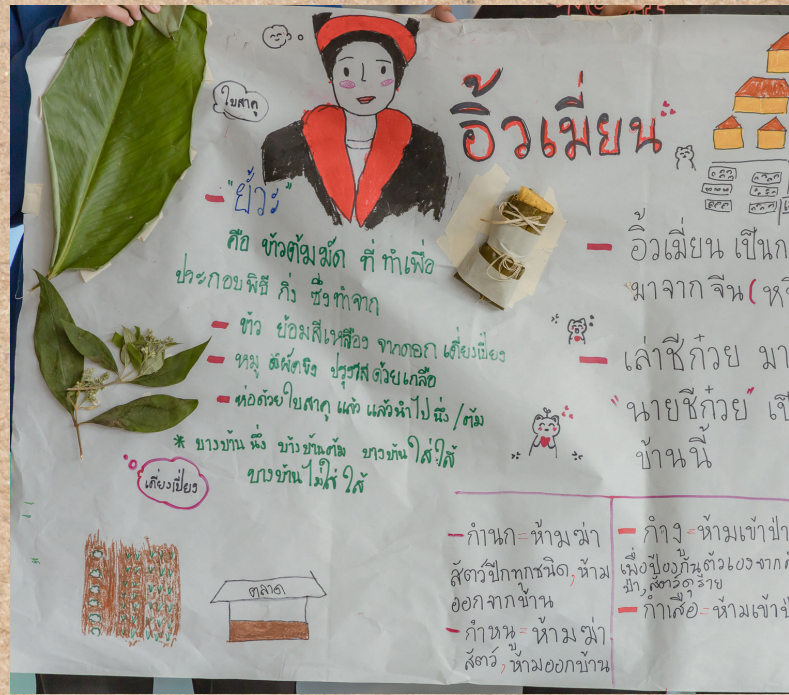 อิ้วเมี่ยน
ใบสาคู
- "ยั้วะ"
คือ ข้าวต้มมัด ที่ ทำเพื่อ
ประกอบพิธี กิ่ง ซึ่งทำจาก
- ข้าว ย้อมสีเหลือง จากดอก เคี่ยงเปี้ยง
- หมู ผัดขิง ปรุงรสด้วยเกลือ
- ห่อด้วยใบสาคู แล้ว แล้วนำไป นึ่ง / ต้ม
* บางบ้าน นึ่ง บ้างบ้านต้ม บางบ้าน ใส่ไส้
บางบ้าน ไม่ใส่ ไส้
เคี่ยงเปี้ยง
ตลาด
- อิ้วเมี่ยน เป็นก
มาจาก จีน (
- เล่าชีก๋วย มา
"นายชีก๋วย" เป็
บ้านนี้
- กำนก = ห้ามฆ่า
สัตว์ปีกทุกชนิด, ห้าม
ออกจากบ้าน
- กำหนู = ห้ามฆ่า
สัตว์, ห้ามออกบ้าน
- กำงู = ห้ามเข้าป่า
เพื่อป้องกันตัวเองจาก
ป่า, สัตว์ดุร้าย
- กำเสือ = ห้ามเข้าป่